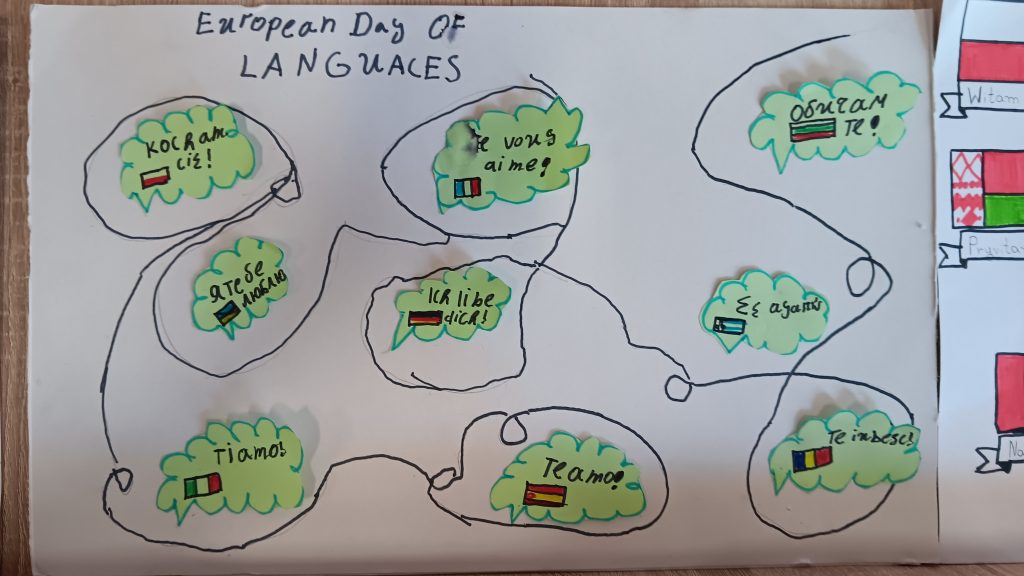 European Day OF
LANGUACES
KOCHAM
CIĘ!
Je vous
aime!
Обичам
те!
Я тебе
люблю
ICH libe
dich!
Ti amo!
Te amo!
Te iubesc!
Witam